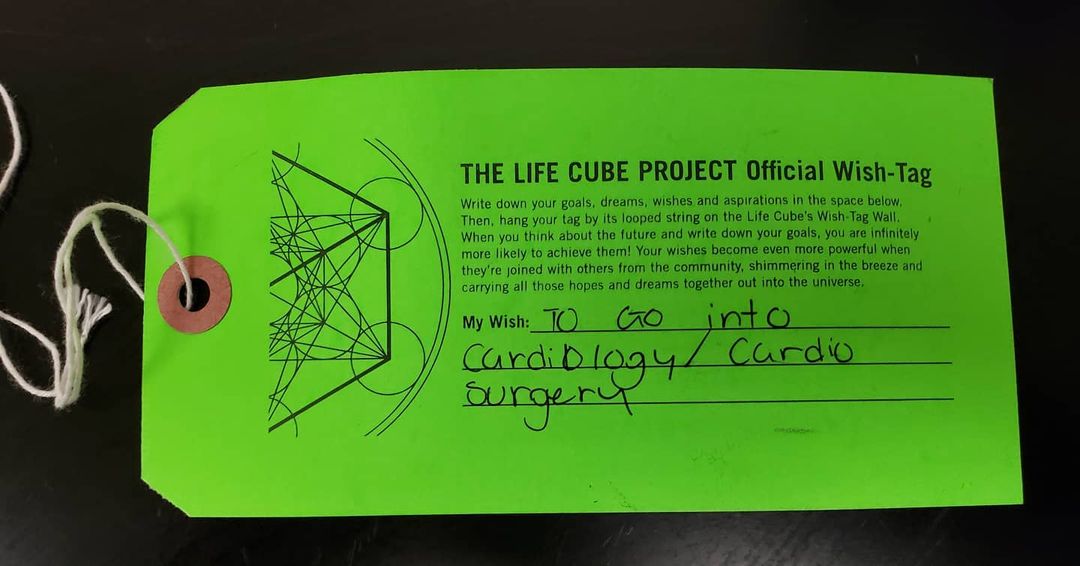 THE LIFE CUBE PROJECT Official Wish-Tag
Write down your goals, dreams, wishes and aspirations in the space below,
Then, hang your tag by its looped string on the Life Cube's Wish-Tag Wall.
When you think about the future and write down your goals, you are infinitely
more likely to achieve them! Your wishes become even more powerful when
they're joined with others from the community, shimmering in the breeze and
carrying all those hopes and dreams together out into the universe.
My Wish: TO GO into
Cardiology/ Cardio
surgery